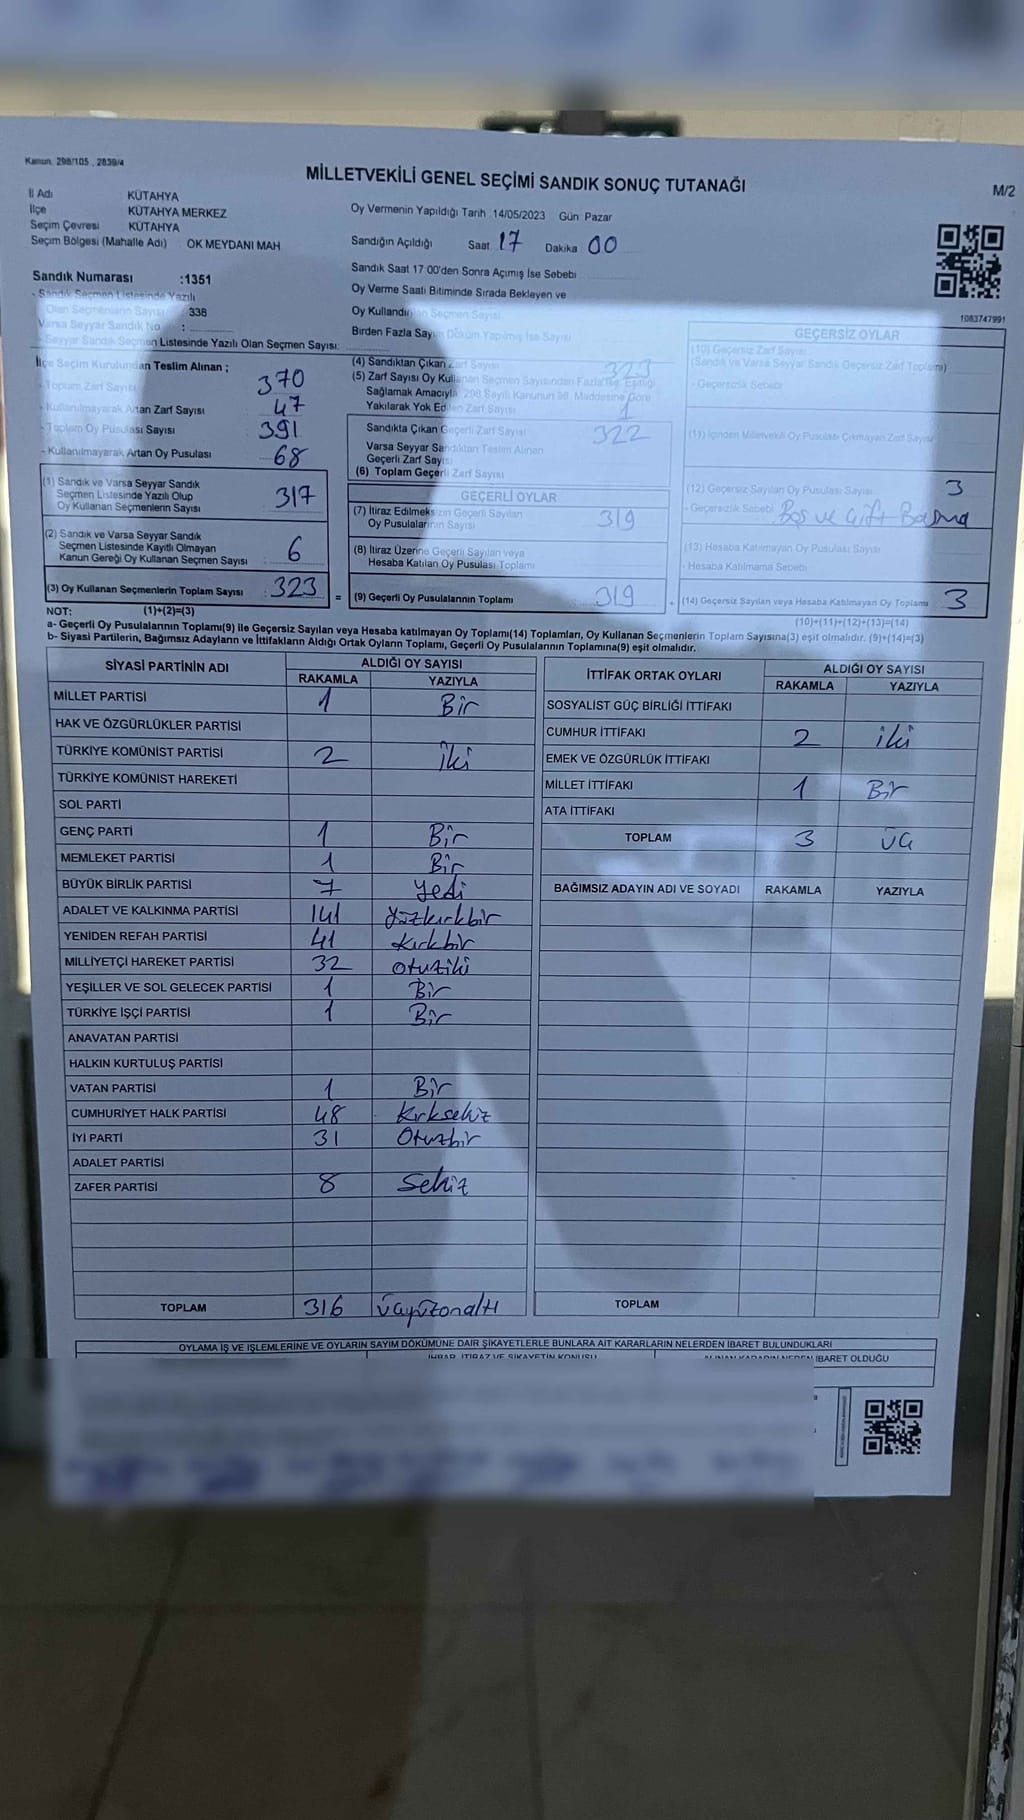 Kanun. 298/105 , 2839/4
MİLLETVEKİLİ GENEL SEÇİMİ SANDIK SONUÇ TUTANAĞI
M/2
İl Adı : KÜTAHYA
İlçe KÜTAHYA MERKEZ
Seçim Çevresi KÜTAHYA
Seçim Bölgesi (Mahalle Adı) OK MEYDANI MAH
Oy Vermenin Yapıldığı Tarih :14/05/2023 Gün: Pazar
Sandığın Açıldığı Saat 17 Dakika 00
Sandık Saat 17:00'den Sonra Açımış İse Sebebi
Oy Verme Saati Bitiminde Sırada Bekleyen ve
Oy Kullandırılan Seçmen Sayısı
Birden Fazla Sayım Döküm Yapılmış İse Sayısı
1083747991
Sandık Numarası :1351
- Sandık Seçmen Listesinde Yazılı
Olan Seçmenlerin Sayısı 338
Varsa Seyyar Sandık No :
- Seyyar Sandık Seçmen Listesinde Yazılı Olan Seçmen Sayısı:
İlçe Seçim Kurulundan Teslim Alınan ;
- Toplam Zarf Sayısı 370
- Kullanılmayarak Artan Zarf Sayısı 47
- Toplam Oy Pusulası Sayısı 391
- Kullanılmayarak Artan Oy Pusulası 68
(1) Sandık ve Varsa Seyyar Sandık
Seçmen Listesinde Yazılı Olup
Oy Kullanan Seçmenlerin Sayısı 317
(2) Sandık ve Varsa Seyyar Sandık
Seçmen Listesinde Kayıtlı Olmayan
Kanun Gereği Oy Kullanan Seçmen Sayısı 6
(3) Oy Kullanan Seçmenlerin Toplam Sayısı 323 =
(4) Sandıktan Çıkan Zarf Sayısı 323
(5) Zarf Sayısı Oy Kullanan Seçmen Sayısından Fazla İse, Eşitliği
Sağlamak Amacıyla 298 Sayılı Kanunun 98. Maddesine Göre
Yakılarak Yok Edilen Zarf Sayısı 1
Sandıkta Çıkan Geçerli Zarf Sayısı 322
Varsa Seyyar Sandıktan Teslim Alınan
Geçerli Zarf Sayısı
(6) Toplam Geçerli Zarf Sayısı
GEÇERLİ OYLAR
(7) İtiraz Edilmeksizin Geçerli Sayılan
Oy Pusulalarının Sayısı 319
(8) İtiraz Üzerine Geçerli Sayılan veya
Hesaba Katılan Oy Pusulası Toplamı
(9) Geçerli Oy Pusulalarının Toplamı 319 +
GEÇERSİZ OYLAR
(10) Geçersiz Zarf Sayısı
(Sandık ve Varsa Seyyar Sandık Geçersiz Zarf Toplamı)
- Geçersizlik Sebebi
(11) İçinden Milletvekili Oy Pusulası Çıkmayan Zarf Sayısı
(12) Geçersiz Sayılan Oy Pusulası Sayısı 3
- Geçersizlik Sebebi Boş ve Çift Basma
(13) Hesaba Katılmayan Oy Pusulası Sayısı
- Hesaba Katılmama Sebebi
(14) Geçersiz Sayılan veya Hesaba Katılmayan Oy Toplamı 3
NOT: (1)+(2)=(3)
(10)+(11)+(12)+(13)=(14)
a- Geçerli Oy Pusulalarının Toplamı(9) ile Geçersiz Sayılan veya Hesaba katılmayan Oy Toplamı(14) Toplamları, Oy Kullanan Seçmenlerin Toplam Sayısına(3) eşit olmalıdır. (9)+(14)=(3)
b- Siyasi Partilerin, Bağımsız Adayların ve İttifakların Aldığı Ortak Oyların Toplamı, Geçerli Oy Pusulalarının Toplamına(9) eşit olmalıdır.
SİYASİ PARTİNİN ADI ALDIĞI OY SAYISI
RAKAMLA YAZIYLA
MİLLET PARTİSİ 1 Bir
HAK VE ÖZGÜRLÜKLER PARTİSİ
TÜRKİYE KOMÜNİST PARTİSİ 2 İki
TÜRKİYE KOMÜNİST HAREKETİ
SOL PARTİ
GENÇ PARTİ 1 Bir
MEMLEKET PARTİSİ 1 Bir
BÜYÜK BİRLİK PARTİSİ 7 Yedi
ADALET VE KALKINMA PARTİSİ 141 Yüzkırkbir
YENİDEN REFAH PARTİSİ 41 Kırkbir
MİLLİYETÇİ HAREKET PARTİSİ 32 Otuziki
YEŞİLLER VE SOL GELECEK PARTİSİ 1 Bir
TÜRKİYE İŞÇİ PARTİSİ 1 Bir
ANAVATAN PARTİSİ
HALKIN KURTULUŞ PARTİSİ
VATAN PARTİSİ 1 Bir
CUMHURİYET HALK PARTİSİ 48 Kırksekiz
İYİ PARTİ 31 Otuzbir
ADALET PARTİSİ
ZAFER PARTİSİ 8 Sekiz
TOPLAM 316 üçyüzonaltı
İTTİFAK ORTAK OYLARI ALDIĞI OY SAYISI
RAKAMLA YAZIYLA
SOSYALİST GÜÇ BİRLİĞİ İTTİFAKI
CUMHUR İTTİFAKI 2 iki
EMEK VE ÖZGÜRLÜK İTTİFAKI
MİLLET İTTİFAKI 1 Bir
ATA İTTİFAKI
TOPLAM 3 üç
BAĞIMSIZ ADAYIN ADI VE SOYADI RAKAMLA YAZIYLA
TOPLAM
OYLAMA İŞ VE İŞLEMLERİNE VE OYLARIN SAYIM DÖKÜMÜNE DAİR ŞİKAYETLERLE BUNLARA AİT KARARLARIN NELERDEN İBARET BULUNDUKLARI
İHBAR, İTİRAZ VE ŞİKAYETİN KONUSU ALINAN KARARIN NEDEN İBARET OLDUĞU